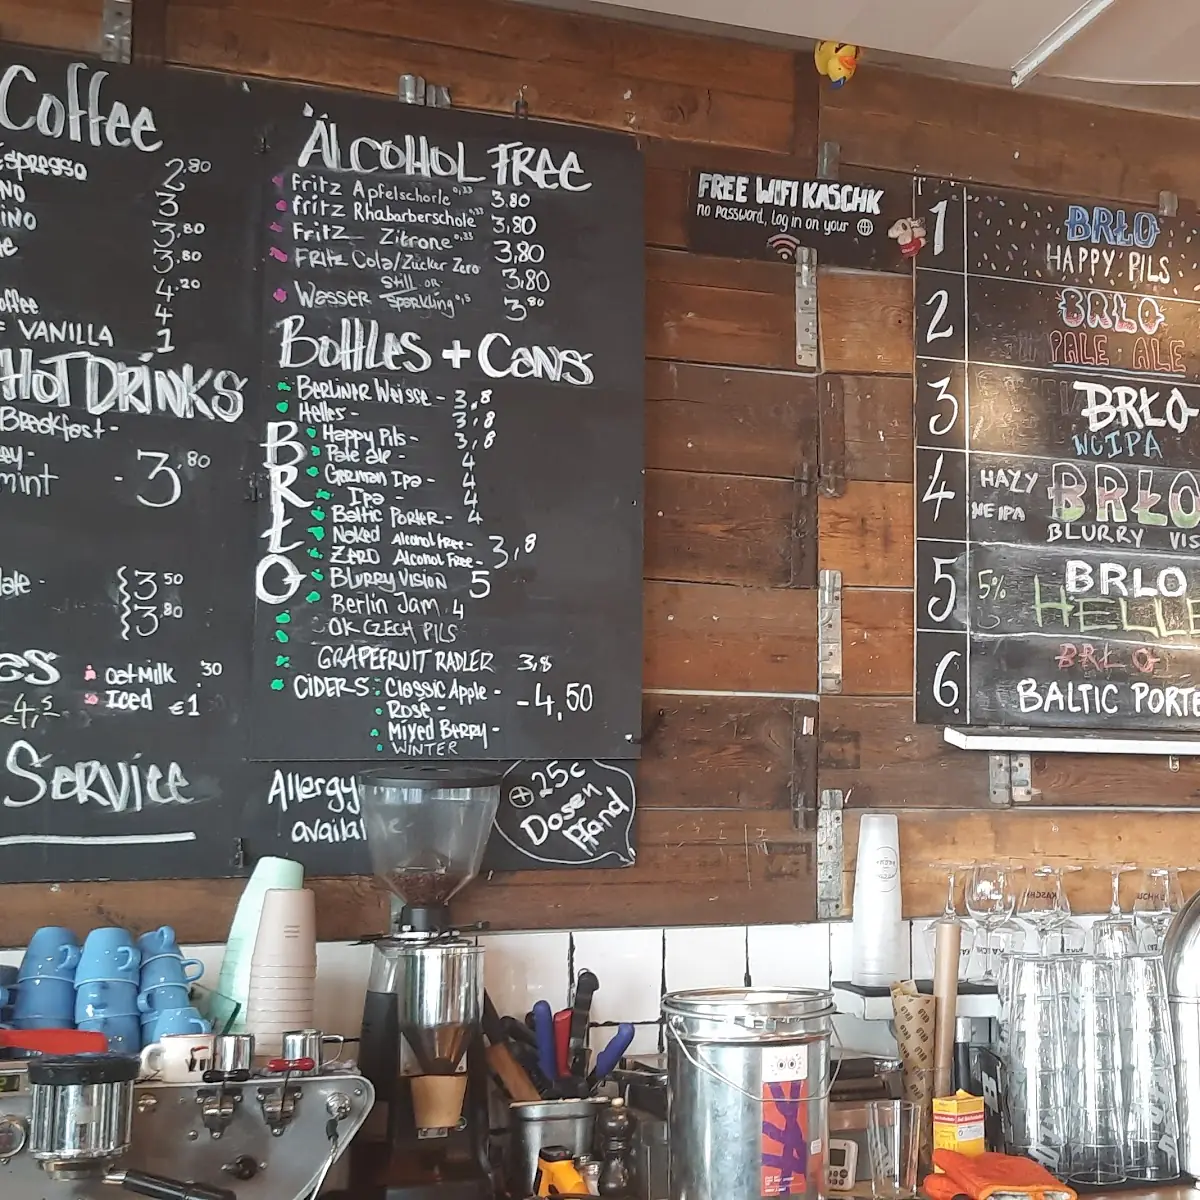 Coffee
Espresso 2.80
NO 3
INO 3.80
3.80
4.20
offee 4
VANILLA 1
HOT DRINKS
Breakfast -
mint - 3.80
ate - 3.50
3.80
Oat Milk .30
Iced €1
Service
ALCOHOL FREE
Fritz Apfelschorle 0,33 3.80
Fritz Rhabarberschole 0,33 3,80
Fritz Zitrone 0,33 3,80
Fritz Cola/Zucker Zero 3,80
Still or
Wasser Sparkling 0,5 3.80
Bottles + Cans
BRŁO
Berliner Weisse - 3,8
Helles - 3,8
Happy Pils - 3,8
Pale ale - 4
German Ipa - 4
Ipa - 4
Baltic Porter - 4
Naked Alcohol free -
Zero Alcohol Free - 3,8
Blurry Vision 5
Berlin Jam 4
OK CZECH PILS
GRAPEFRUIT RADLER 3,8
CIDERS: Classic Apple - - 4,50
Rosé -
Mixed Berry -
WINTER
Allergy
availa
+ 25c
Dosen
Pfand
FREE WIFI KASCHK
no password, log in on your
1 BRŁO
HAPPY PILS
2 BRŁO
PALE ALE
3 BRŁO
WCIPA
4 HAZY BRŁO
NE IPA
BLURRY VIS
5 5% BRLO
HELLE
6. BRLO
BALTIC PORTE